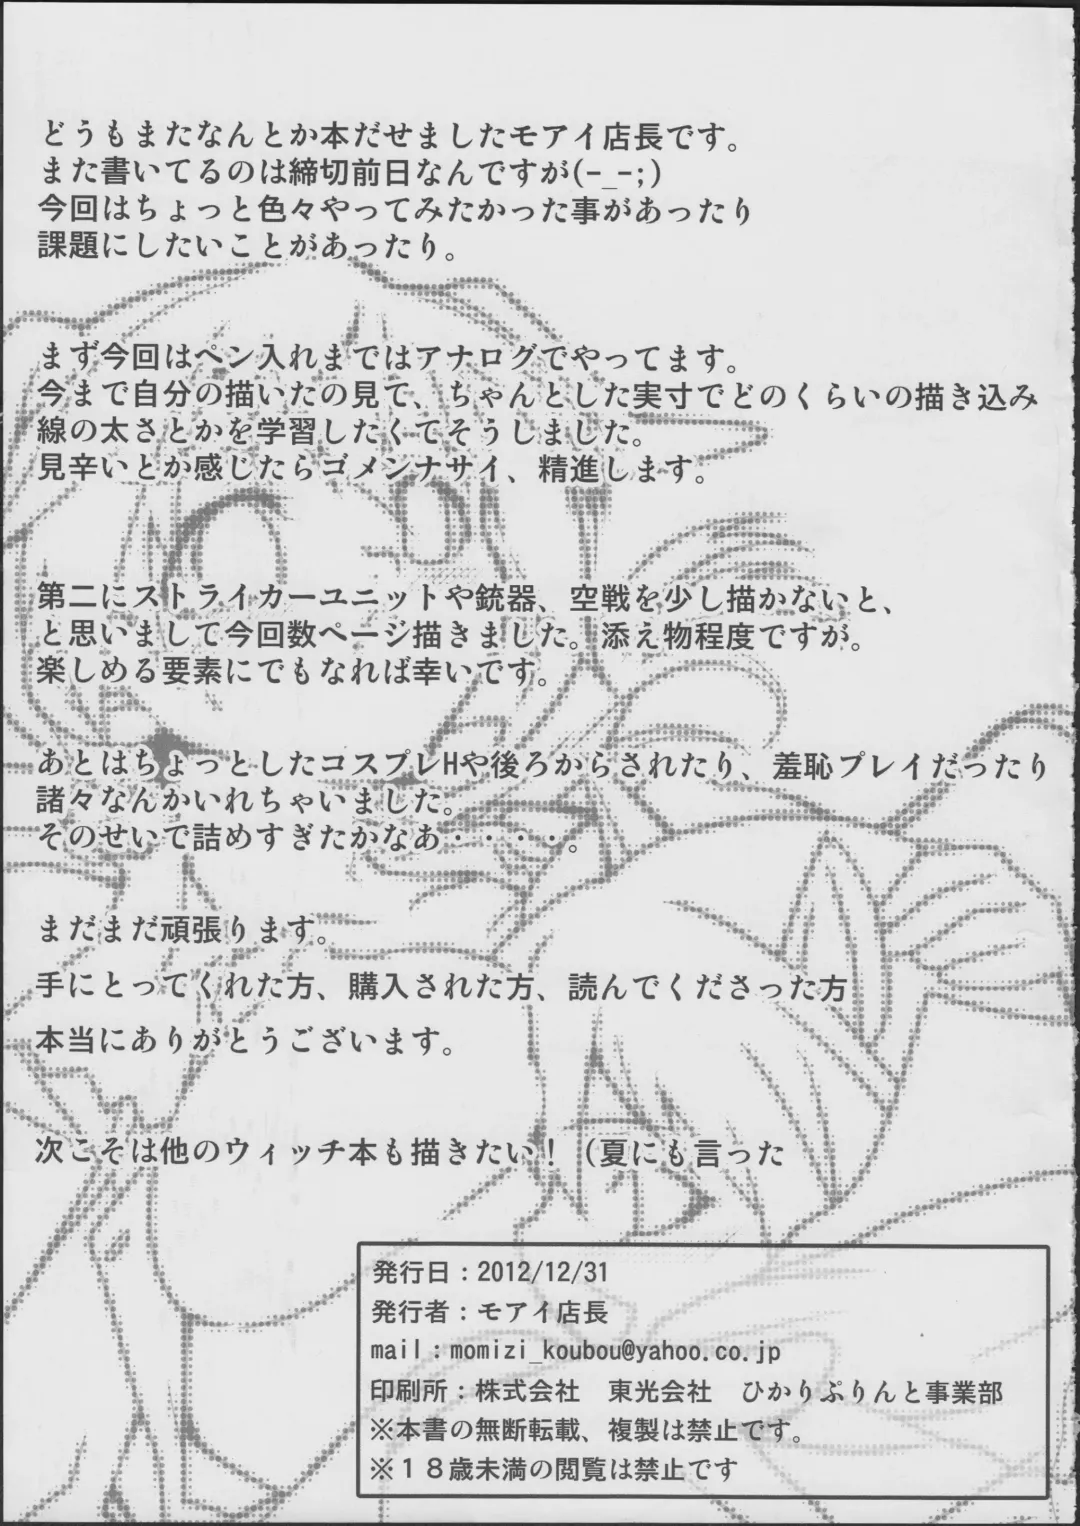 どうもまたなんとか本だせましたモアイ店長です。
また書いてるのは締切前日なんですが(-_-;)
今回はちょっと色々やってみたかった事があったり
課題にしたいことがあったり。
まず今回はペン入れまではアナログでやってます。
今まで自分の描いたの見て、ちゃんとした実寸でどのくらいの描き込み
線の太さとかを学習したくてそうしました。
見辛いとか感じたらゴメンナサイ、精進します。
第二にストライカーユニットや銃器、空戦を少し描かないと、
と思いまして今回数ページ描きました。添え物程度ですが。
楽しめる要素にでもなれば幸いです。
あとはちょっとしたコスプレHや後ろからされたり、羞恥プレイだったり
諸々なんかいれちゃいました。
そのせいで詰めすぎたかなあ・・・・。
まだまだ頑張ります。
手にとってくれた方、購入された方、読んでくださった方
本当にありがとうございます。
次こそは他のウィッチ本も描きたい！（夏にも言った
発行日：2012/12/31
発行者：モアイ店長
mail：momizi_koubou@yahoo.co.jp
印刷所：株式会社　東光会社　ひかりぷりんと事業部
※本書の無断転載、複製は禁止です。
※１８歳未満の閲覧は禁止です